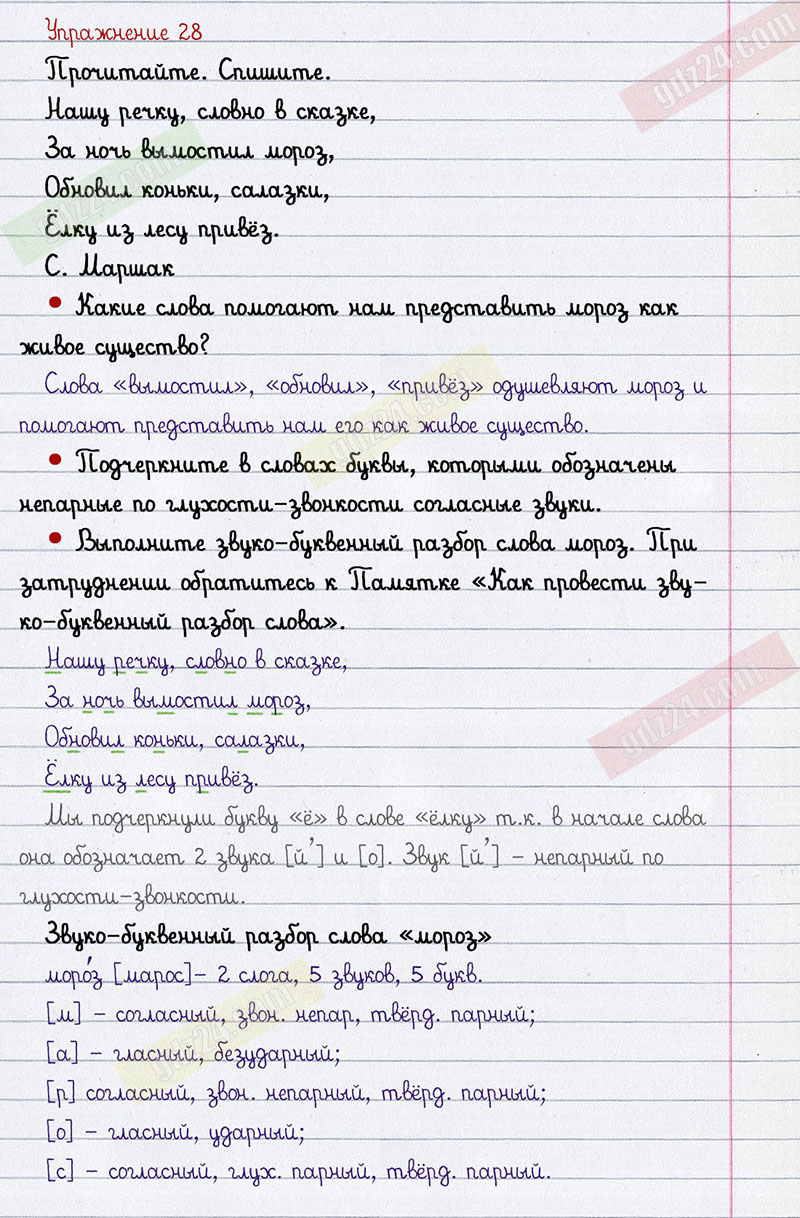 Упражнение 28
Прочитайте. Спишите.
Нашу речку, словно в сказке,
За ночь вымостил мороз,
Обновил коньки, салазки,
Ёлку из лесу привёз.
С. Маршак
• Какие слова помогают нам представить мороз как
живое существо?
Слова «вымостил», «обновил», «привёз» одушевляют мороз и
помогают представить нам его как живое существо.
• Подчеркните в словах буквы, которыми обозначены
непарные по глухости-звонкости согласные звуки.
• Выполните звуко-буквенный разбор слова мороз. При
затруднении обратитесь к Памятке «Как провести зву-
ко-буквенный разбор слова».
Нашу речку, словно в сказке,
За ночь вымостил мороз,
Обновил коньки, салазки,
Ёлку из лесу привёз.
Мы подчеркнули букву «ё» в слове «ёлку» т.к. в начале слова
она обозначает 2 звука [й'] и [о]. Звук [й'] – непарный по
глухости-звонкости.
Звуко-буквенный разбор слова «мороз»
моро́з [марос]– 2 слога, 5 звуков, 5 букв.
[м] – согласный, звон. непар, твёрд. парный;
[а] – гласный, безударный;
[р] согласный, звон. непарный, твёрд. парный;
[о] – гласный, ударный;
[с] – согласный, глух. парный, твёрд. парный.
gdz24.com
gdz24.com
gdz24.com
gdz24.com
gdz24.com